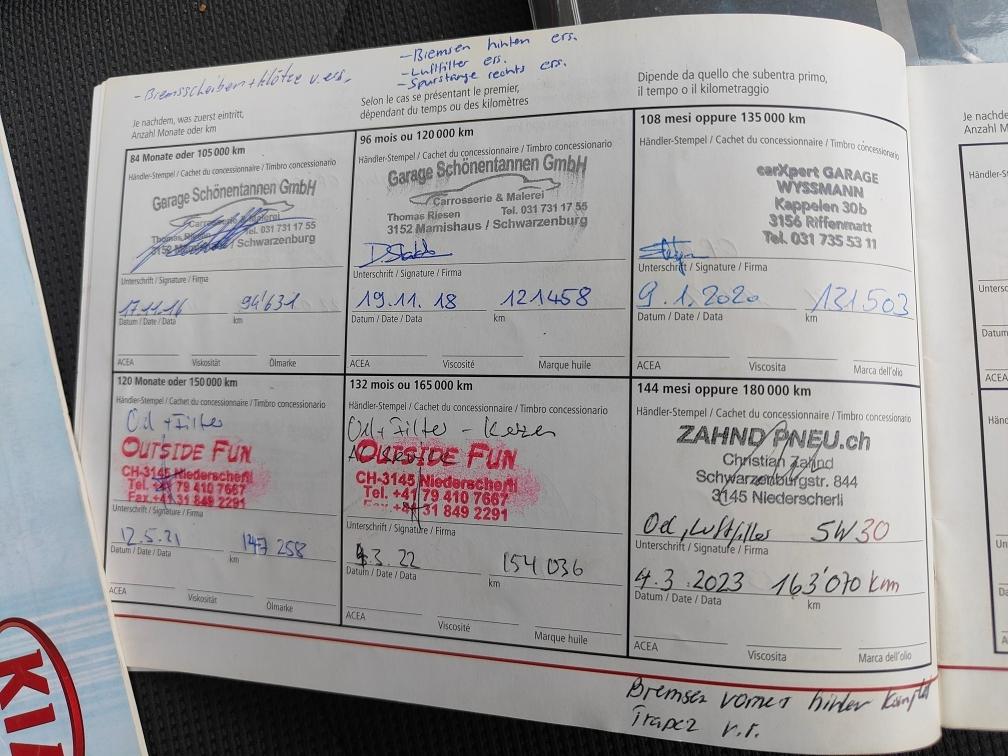 - Bremsscheiben + Klötze v. ers.
- Bremsen hinten ers.
- Luftfilter ers.
- Spurstange rechts ers.
Je nachdem, was zuerst eintritt,
Anzahl Monate oder km
Selon le cas se présentant le premier,
dépendant du temps ou des kilomètres
Dipende da quello che subentra primo,
il tempo o il kilometraggio
84 Monate oder 105 000 km
Händler-Stempel / Cachet du concessionnaire / Timbro concessionario
Garage Schönentannen GmbH
Carrosserie & Malerei
Thomas Riesen Tel. 031 731 17 55
3152 Mamishaus / Schwarzenburg
Unterschrift / Signature / Firma
17.11.16 94'631
Datum / Date / Data km
ACEA Viskosität Ölmarke
96 mois ou 120 000 km
Händler-Stempel / Cachet du concessionnaire / Timbro concessionario
Garage Schönentannen GmbH
Carrosserie & Malerei
Thomas Riesen Tel. 031 731 17 55
3152 Mamishaus / Schwarzenburg
Unterschrift / Signature / Firma
19.11.18 121458
Datum / Date / Data km
ACEA Viscosité Marque huile
108 mesi oppure 135 000 km
Händler-Stempel / Cachet du concessionnaire / Timbro concessionario
carXpert GARAGE
WYSSMANN
Kappelen 30b
3156 Riffenmatt
Tel. 031 735 53 11
Unterschrift / Signature / Firma
9.1.2020 131503
Datum / Date / Data km
ACEA Viscosita Marca dell'olio
120 Monate oder 150 000 km
Händler-Stempel / Cachet du concessionnaire / Timbro concessionario
Oil + Filter
OUTSIDE FUN
CH-3145 Niederscherli
Tel. +41 79 410 7667
Fax +41 31 849 2291
Unterschrift / Signature / Firma
12.5.21 147 258
Datum / Date / Data km
ACEA Viskosität Ölmarke
132 mois ou 165 000 km
Händler-Stempel / Cachet du concessionnaire / Timbro concessionario
Oil + Filter - Kerzen
OUTSIDE FUN
CH-3145 Niederscherli
Tel. +41 79 410 7667
Fax +41 31 849 2291
Unterschrift / Signature / Firma
3.22 154 036
Datum / Date / Data km
ACEA Viscosité Marque huile
144 mesi oppure 180 000 km
Händler-Stempel / Cachet du concessionnaire / Timbro concessionario
ZAHND PNEU.ch
Christian Zahnd
Schwarzenburgstr. 844
3145 Niederscherli
Oel, Luftfilter 5W30
Unterschrift / Signature / Firma
4.3.2023 163'070 km
Datum / Date / Data km
ACEA Viscosita Marca dell'olio
Bremsen vorne + hinten Komplet
Trapez v.r.
Je nachde
Anzahl M
Händler-S
Datum
ACEA
KIA